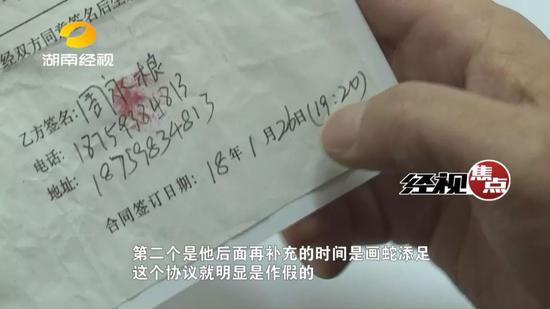 湖南经视
经双方同意签名后生
乙方签名:周永粮
电话: 18759834813
地址: 18759834813
合同签订日期: 18年1月26日(19:20)
经视焦点
第二个是他后面再补充的时间是画蛇添足
这个协议就明显是作假的